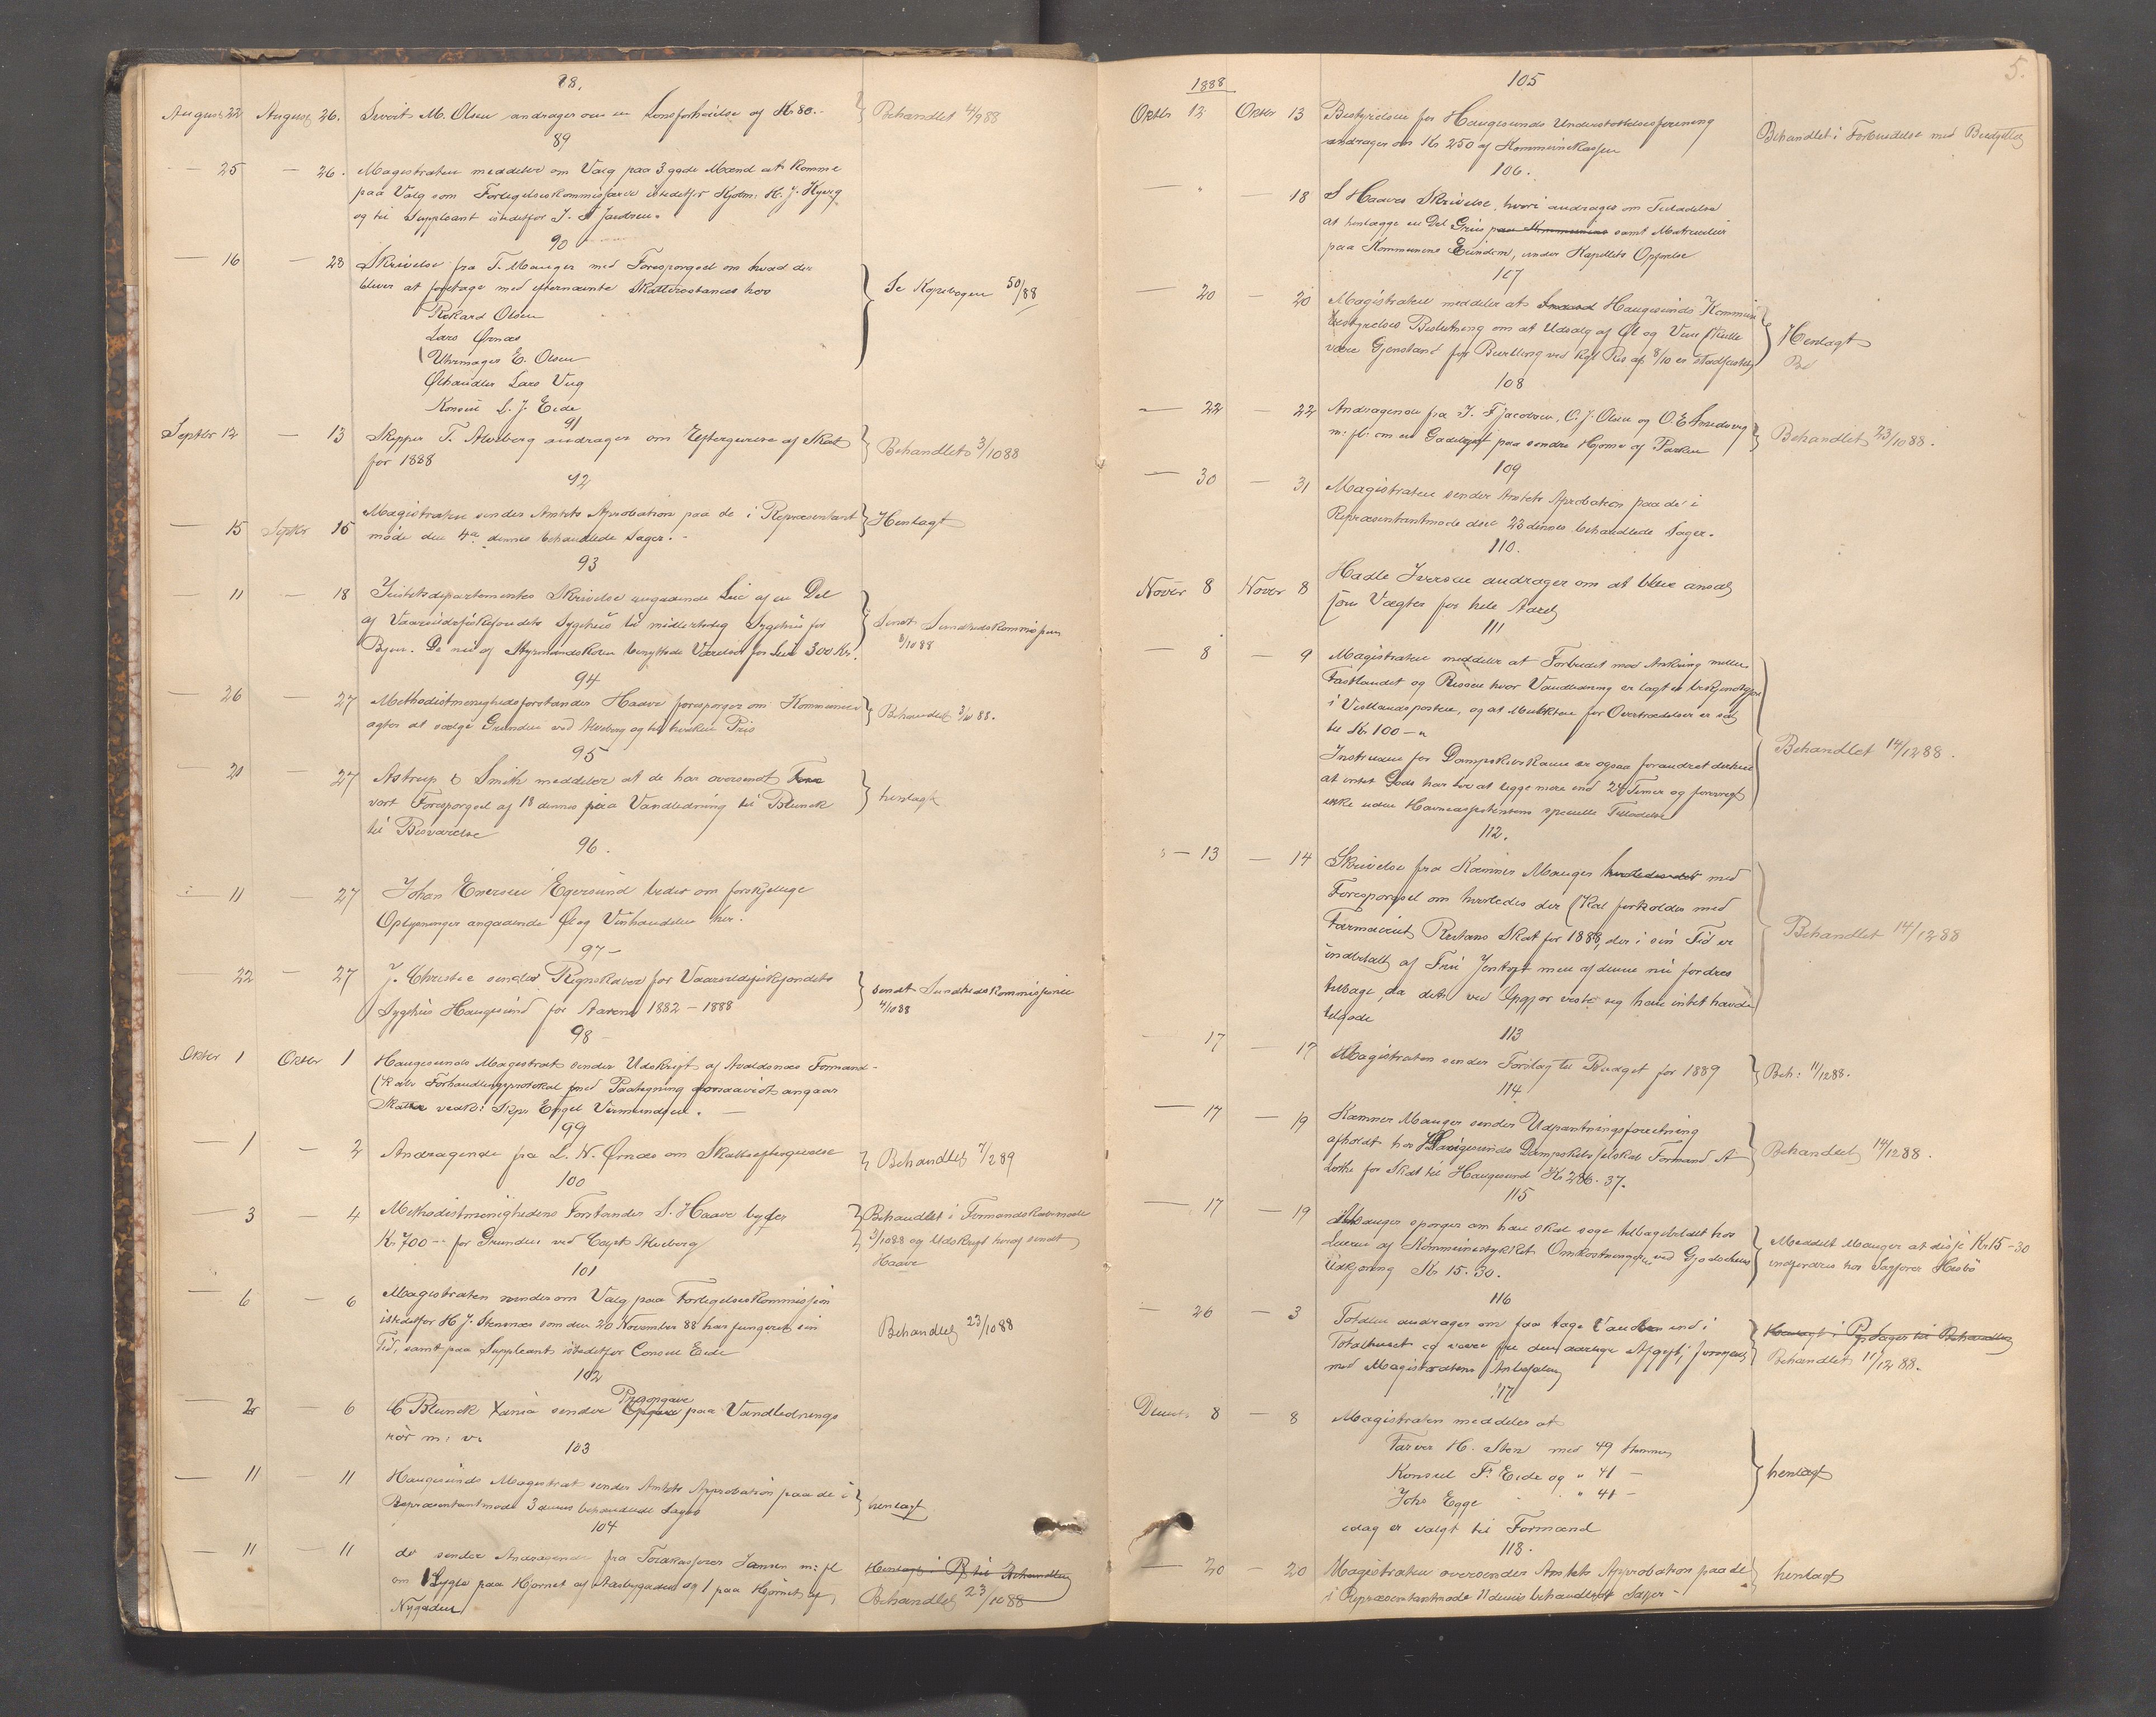 88.
August 22 August 26. Sivert M. Olsen andrager om en Lønsforhøielse af Kr 80.- Behandlet 4/9 88
89
25 — 26. Magistraten meddeler om Valg paa 3 gode Mænd at komme
paa Valg som Forligelseskommissærer istedetfor H. J.
og til Suppleant istedetfor J.
90
— 16 — 23 Skrivelse fra T. Mauger med Forespørgsel om hvad der
bliver at foretage med efternævnte Skatterestancer hos
Se Kopibogen 50/88
Rikard Olsen
Lars Ørnes
Uhrmager E. Olsen
Ølhandler Lars
Konsul L. J. Eide
91
Septbr 12 — 13 Skipper T. andrager om Eftergivelse af Skat
for 1888
Behandlet 3/10 88
92
— 15 Septbr 15 Magistraten sender Amtets Approbation paa de i Repræsentant
møde den 4de dennes behandlede Sager.-
Henlagt
93
— 11 — 18 Justitsdepartementets Skrivelse angaaende Leie af en Del
af Vaarsildfiskefondets Sygehus til midlertidig Sygehus for
Byen. De nu af Styrmandskolen benyttede Værelser for Leie 300 Kr.
Sendt Sundhedskommissionen
3/10 88
94
— 26 — 27 Methodistmenighedsforstander Haave forespørger om Kommunen
agter at sælge Grunden ved og til hvilken Pris
Behandlet 3/10 88.
95
— 21 — 27 Astrup & Smith meddeler at de har oversendt
vort Forespørgsel af 18 dennes paa Vandledning til Blunck
til Besvarelse
henlagt
96.
— 11 — 27 Johan Enersen Egersund beder om forskjellige
Oplysninger angaaende Øl og Vinhandelen her.
97 —
— 22 — 27 J. Christie sender Regnskaber for Vaarsildfiskfondets
Sygehus Haugesund for Aarene 1882 - 1888
sendt Sundhedskommissionen
4/10 88
98
Oktbr 1 Oktbr 1 Haugesunds Magistrat sender Udskrift af Avaldsnæs Formand-
skabs Forhandlingsprotokol med Paategning forsaavidt angaar
Skatter vedk: Skpr Engel Vermundsen. —
99
— 1 — 2 Andragende fra L. N. Ørnes om Skatteeftergivelse
Behandlet 7/2 89
100
— 3 — 4 Methodistmenighedens Forstander S. Haave byder
Kr 700 -- for Grunden ved Capt.
Behandlet i Formandskabsmøde
3/10 88 og Udskrift heraf sendt
Haave
101
— 6 — 6 Magistraten minder om Valg paa Forligelseskommission
istedetfor H. J. Stensnæs som den 20 November 88 har fungeret sin
Tid, samt paa Suppleant istedetfor Consul Eide
Behandlet 23/10 88
102
— 2 — 6 C Blunck Xania sender Prisopgave paa Vandlednings
rør m: v.
103
— 11 — 11 Haugesunds Magistrat sender Amtets Approbation paa de i
Repræsentantmøde 3 dennes behandlede Sager
henlagt
104
— 11 — 11 do sender Andragende fra Jansen m: fl
om 1 Lygte paa Hjørnet af Aasbygaden og 1 paa Hjørnet af
Nygaden
Henlagt i Pf. til Behandling
Behandlet 23/10 88
5.
1888
105
Oktbr 12 Oktbr 13 Bestyrelsen for Haugesunds Understøttelsesforening
andrager om Kr 250 af Kommunekassen
Behandlet i Forbindelse med Budgettet
106.
— " — 18 S Haaves Skrivelse, hvori andrages om Tilladelse
at henlægge en Del Grus paa Kommunens samt Materialier
paa Kommunens Eiendom, under Kapellets Opførelse
107
— 20 — 20 Magistraten meddeler at Haugesunds Kommune
bestyrelses Beslutning om at Udsalg af Øl og Vin skulle
være Gjenstand for Bevilling ved Kgl Res af 8/10 er stadfæstet
Henlagt
Be
108
— 22 — 22 Andragende fra J. F Jacobsen, C. J. Olsen og O. E.
m: fl: om en Gadelygt paa søndre Hjørne af Parken
Behandlet 23/10 88.
109
— 30 — 31 Magistraten sender Amtets Aprobation paa de i
Repræsentantmøde den 23 dennes behandlede Sager.
110.
Novbr 8 Novbr 8 Hadle Iversen andrager om at blive ansat
som Vægter for hele Aaret
111
— 8 — 9 Magistraten meddeler at Forbudet mod Ankring mellem
Fastlandet og Risøen hvor Vandledning er lagt er bekjendtgjort
i Vestlandsposten, og at Mulkten for Overtrædelser er sat
til Kr 100 - "
Instruxen for Dampskibskaien er ogsaa forandret derhen
at intet Gods har lov at ligge mere end 24 Timer og forøvrigt
ikke uden Havneassistentens specielle Tilladelse
Behandlet 14/12 88.
112.
— 13 — 14 Skrivelse fra Kæmner Mauger hvorledes det med
Forespørgsel om hvorledes der skal forholdes med
Restans Skat for 1888, der i sin Tid er
indbetalt af Fru Jentoft men af denne nu fordres
tilbage, da dette ved Opgjør viste sig han intet havde
tilgode
Behandlet 14/12 88
113
— 17 — 17 Magistraten sender Forslag til Budget for 1889
Beh: 11/12 88.
114
— 17 — 19 Kæmner Mauger sender Udpantningsforretning
afholdt hos Haugesunds Dampskibsselskab Formand A
Lothe for Skat til Haugesund Kr 286. 37.
Behandlet 14/12 88.
115
— 17 — 19 Mauger spørger om han skal søge tilbagebetalt hos
Eieren af Kommunestykket Omkostningene ved Gjødschens
Udkjøring Kr 15. 30.
Meddelt Mauger at disse Kr 15 - 30
indfordres hos Sagfører Husbø
116
— 26 — 3 Tolden andrager om faa tage Vandet ind i
Toldhuset og være fri den aarlige Afgift, forøvrigt
med Magistratens Anbefaling
Henlagt i Pf. Sager til Behandling
Behandlet 11/12 88.
117
Decbr 8 — 8 Magistraten meddeler at
Farver H. Sten med 49 Stemmer
Konsul Fr Eide og " 41 —
Johs Egge " 41 —
idag er valgt til Formænd
henlagt
118.
— 20 — 20 Magistraten oversender Amtets Approbation paa de
i Repræsentantmøde 11 dennes behandlede Sager -
henlagt